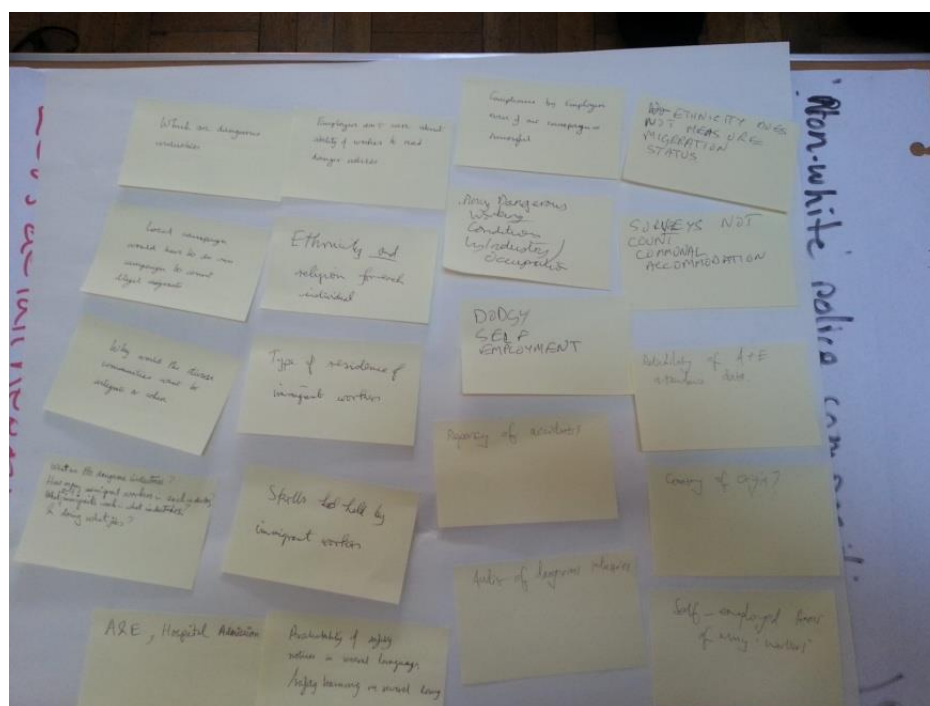 Which are dangerous
industries
Employers don't care about
ability of workers to read
danger notices
Compliance by Employers
even if our campaign is
successful
ETHNICITY DOES
NOT MEASURE
MIGERATION
STATUS
Local campaign
would have to be
campaign to
illegal migrants
Ethnicity and
religion for each
individual
Dangerous
Working
Conditions
by industry/
occupation
SURVEYS NOT
COUNT
COMMUNAL
ACCOMMODATION
Why would the
communities want to
Type of residence of
immigrant workers
DODGY
SELF
EMPLOYMENT
Reliability of A+E
attendance data
What are the dangerous industries?
How many immigrant workers in each industry
What immigrants work - what industries
& doing what jobs?
Skills held by
immigrant workers
Reporting of accidents
Country of origin?
A&E, Hospital Admission
Availability of safety
notices in several languages
/safety training in several lang
of dangerous industries
Self-employed
of using "workers"
Non-white police